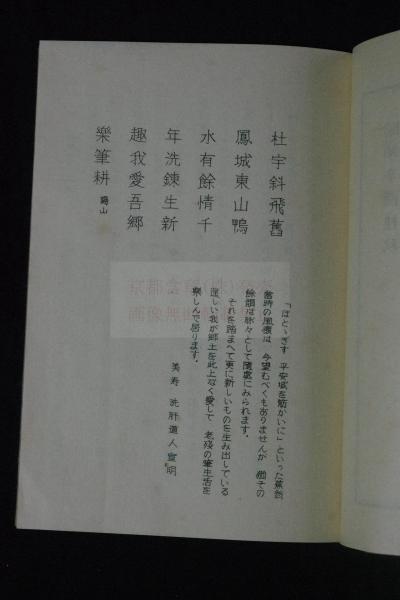 杜宇斜飛舊
鳳城東山鴨
水有餘情千
年洗錬生新
趣我愛吾郷
樂筆耕 鳴山
「ほとゝぎす 平安城を筋かいに」といった蕪村
當時の風懷は 今望むべくもありませんが 尚その
餘韻は脉々として隨處にみられます。
それを踏まへて更に新しいものを生み出している
美しい我が郷土を此上なく愛して 老殘の筆生活を
樂しんで居ります。
美寿 洗肝道人宣明
京都
画像無断